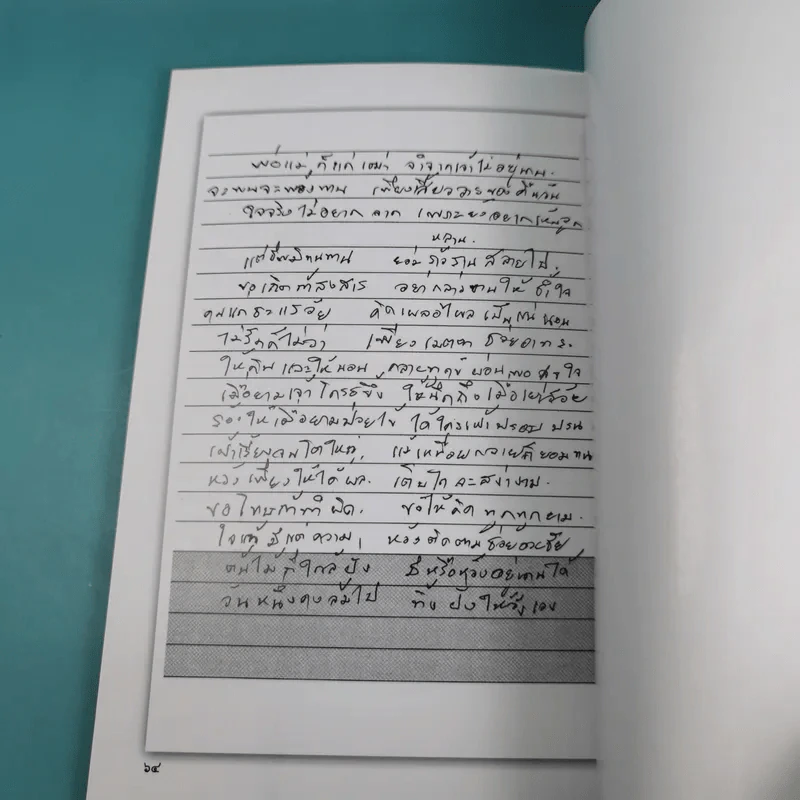 พ่อแม่ ก็แก่เฒ่า จำจากเจ้าไม่อยู่นาน.
จะพบจะพ้องพาน เพียงเสี้ยววารของคืนวัน
ใจจริงไม่อยากจาก เพราะยังอยากเห็นลูก
หลาน.
แต่ชีพมิทนทาน ย่อมร้าวรานสลายไป.
ขอเถิดถ้าสงสาร อย่ากล่าวขานให้ช้ำใจ
คนแก่ชะแรวัย คิดเผลอไผลเป็นแน่นอน
ไม่รักก็ไม่ว่า เพียงเมตตาช่วยอาทร
ให้กินและให้นอน คลายทุกข์ผ่อนพอสุขใจ
เมื่อยามเจ้าโกรธขึ้ง ให้นึกถึงเมื่อเยาว์วัย
ร้องไห้เมื่อยามป่วยไข้ ได้ใครเฝ้าปรอบปรน
เฝ้าเลี้ยงจนโตใหญ่, แม้เหนื่อยกายก็ยอมทน
หวังเพียงให้ได้ผล. เติบโตและสง่างาม.
ขอโทษถ้าทำผิด. ขอให้คิดทุกทุกยาม.
ใจแท้มีแต่ความ หวังติดตามช่วยอวยชัย
ต้นไม้ที่ใกล้ฝั่ง มีหรือหวังอยู่นานได้
วันหนึ่งคงล้มไป ทิ้งฝั่งให้วังเวง
๖๔